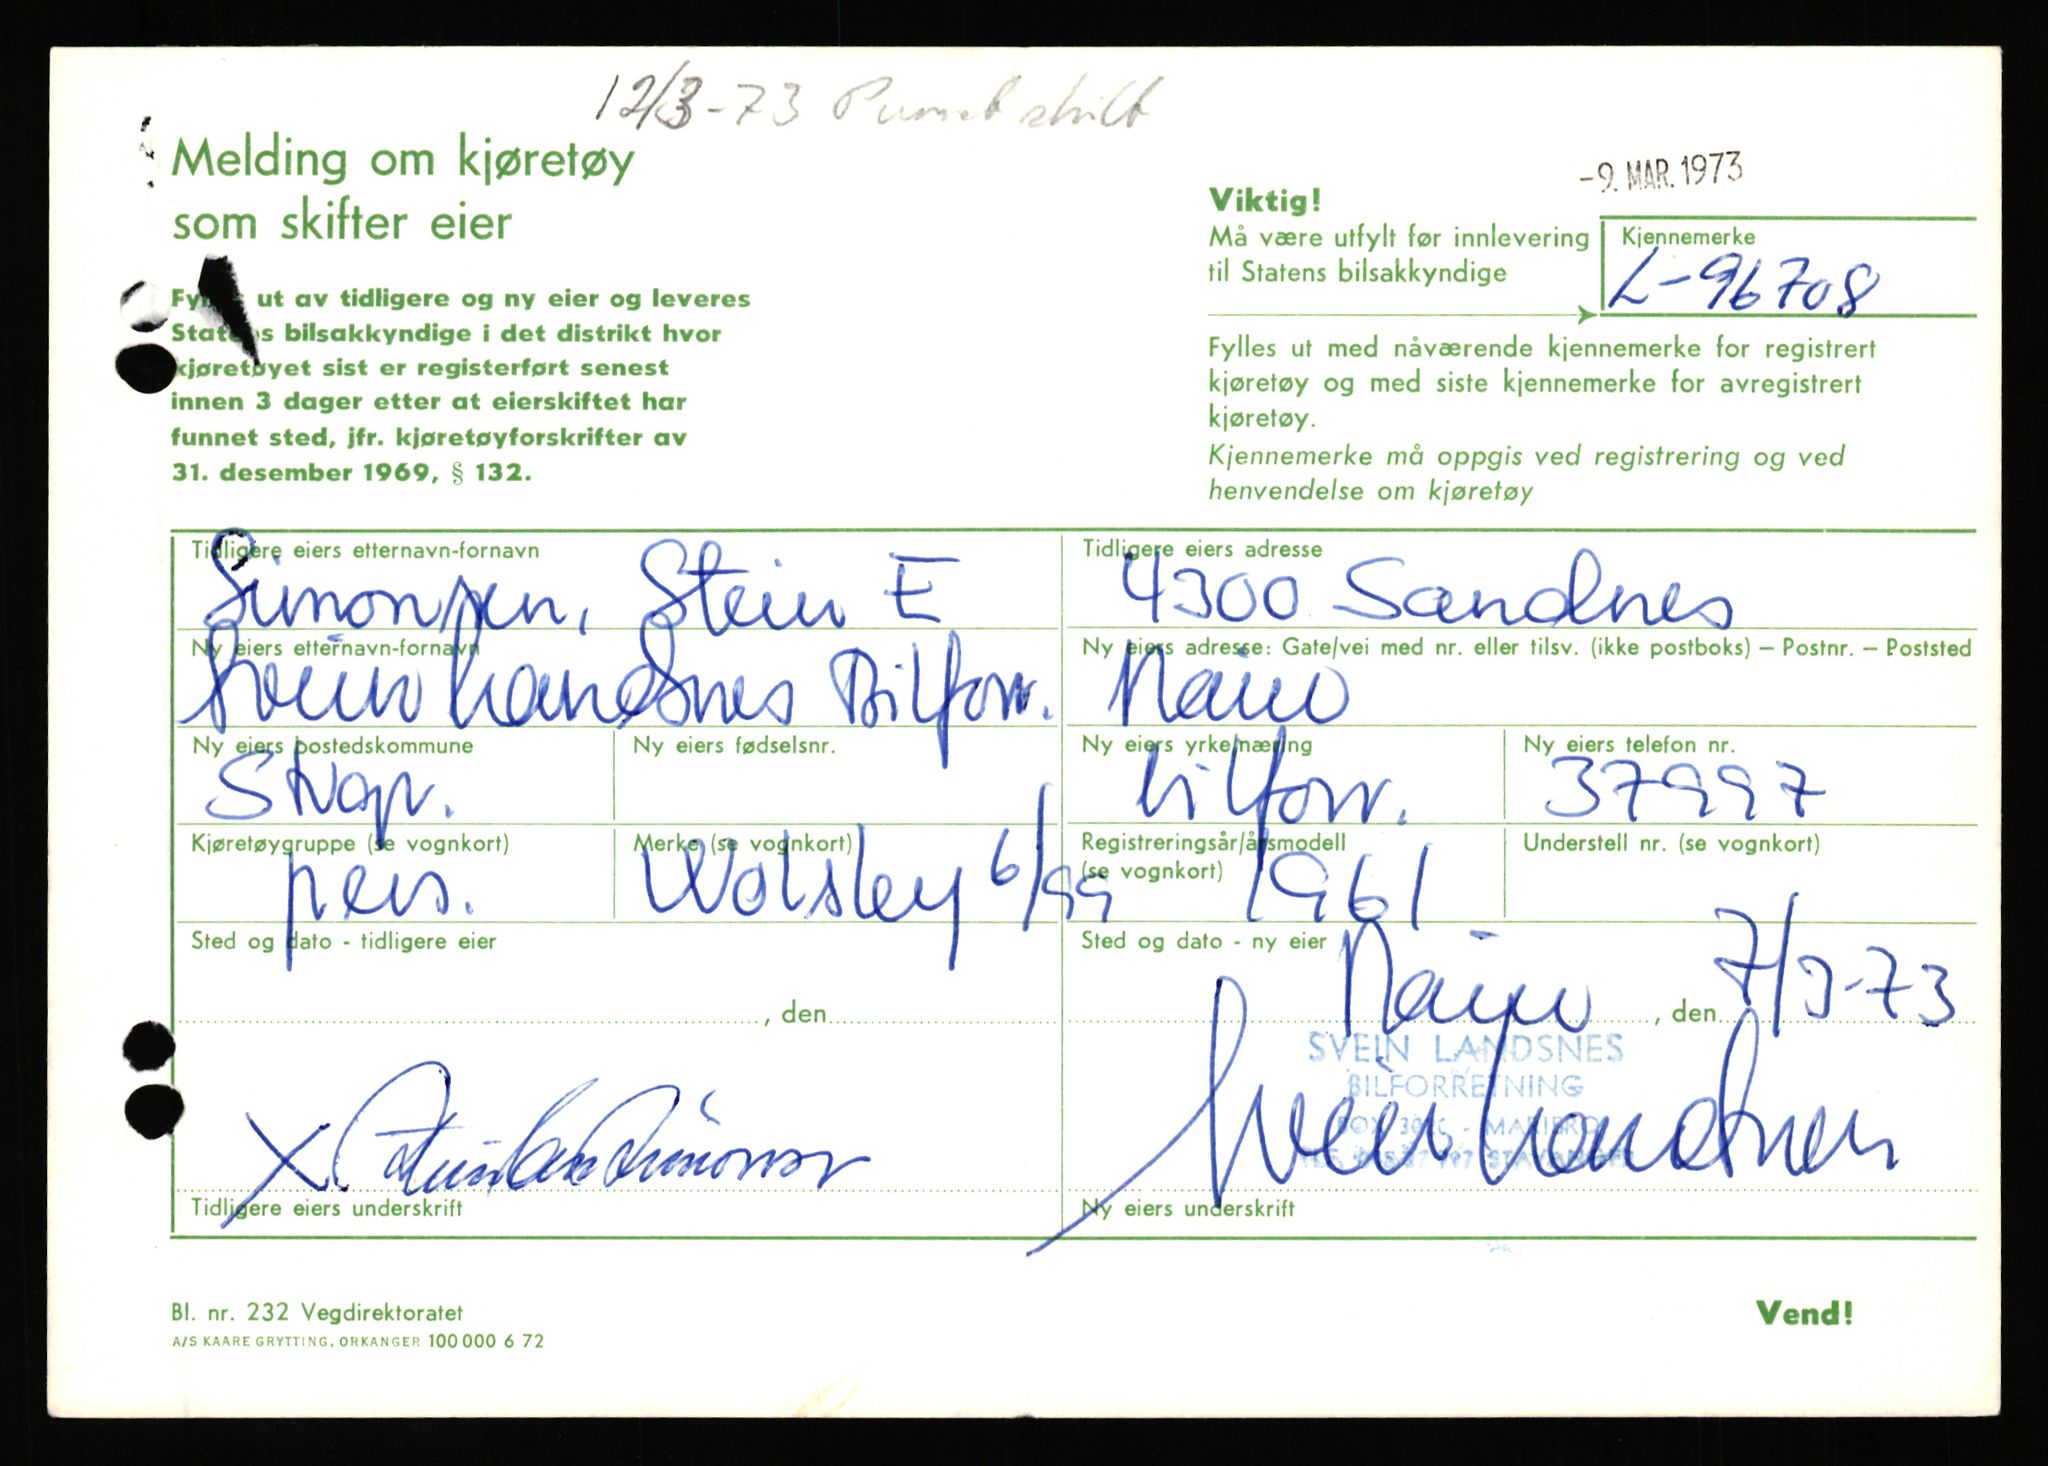 12/3-73 Purret skilt
Melding om kjøretøy
som skifter eier
-9. MAR. 1973
Viktig!
Må være utfylt før innlevering
til Statens bilsakkyndige
Kjennemerke
L-96708
Fylles ut av tidligere og ny eier og leveres
Statens bilsakkyndige i det distrikt hvor
kjøretøyet sist er registerført senest
innen 3 dager etter at eierskiftet har
funnet sted, jfr. kjøretøyforskrifter av
31. desember 1969, § 132.
Fylles ut med nåværende kjennemerke for registrert
kjøretøy og med siste kjennemerke for avregistrert
kjøretøy.
Kjennemerke må oppgis ved registrering og ved
henvendelse om kjøretøy
Tidligere eiers etternavn-fornavn
Simonsen, Stein E
Tidligere eiers adresse
4300 Sandnes
Ny eiers etternavn-fornavn
Svein Landsnes Bilforr.
Ny eiers adresse: Gate/vei med nr. eller tilsv. (ikke postboks) — Postnr. — Poststed
Ny eiers bostedskommune
Ny eiers fødselsnr.
Ny eiers yrke/næring
bilforr.
Ny eiers telefon nr.
37997
Kjøretøygruppe (se vognkort)
pers.
Merke (se vognkort)
Wolsley 6/99
Registreringsår/årsmodell
(se vognkort)
1961
Understell nr. (se vognkort)
Sted og dato - tidligere eier
, den
Sted og dato - ny eier
, den 7/3-73
SVEIN LANDSNES
BILFORRETNING
BOX 30 - MARIERO
STAVANGER
Tidligere eiers underskrift
Svein Landsnes
Ny eiers underskrift
Bl. nr. 232 Vegdirektoratet
A/S KAARE GRYTTING, ORKANGER 100 000 6 72
Vend!